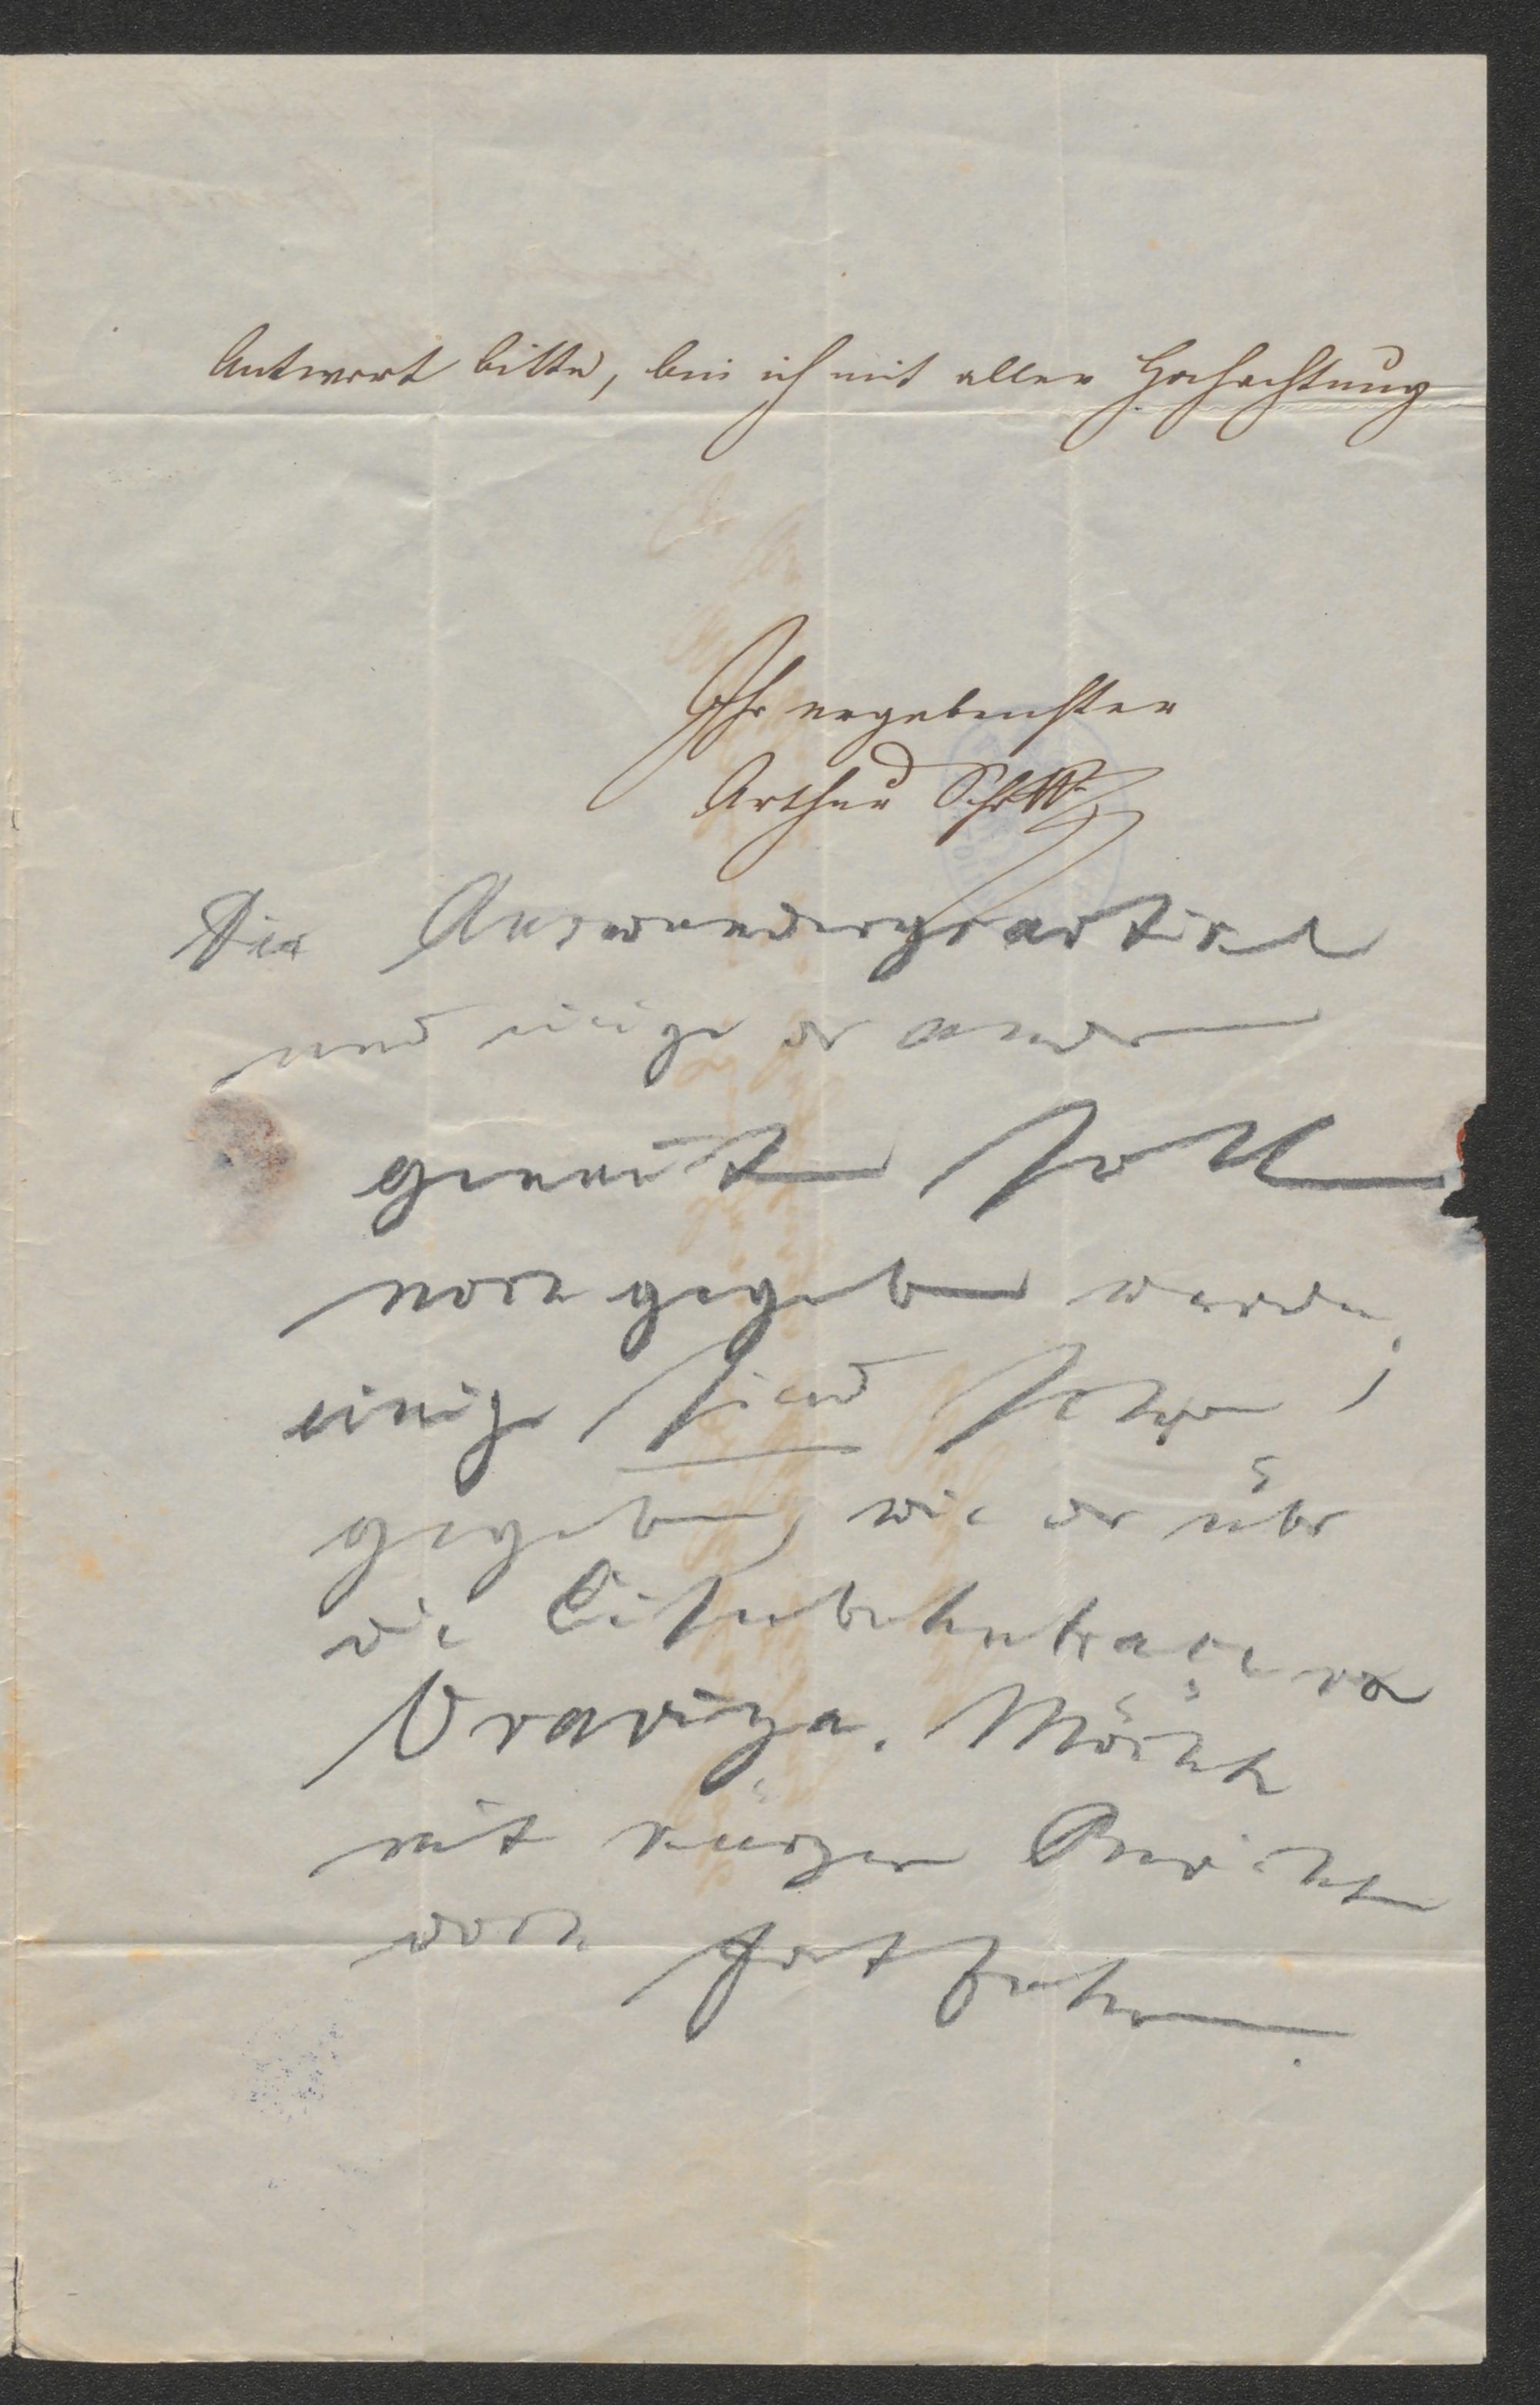 Antwort bitte, bin ich mit aller Hochachtung
Ihr ergebenster
Arthur Schott
Die Auswanderungsartikel
und einige der andern
genannten sollen
noch gegeben werden,
einige sind schon
gegeben, wie der über
die Eisenbahn
Oravitza. Möchte
mit kürzern Berichten
doch fortfahren.